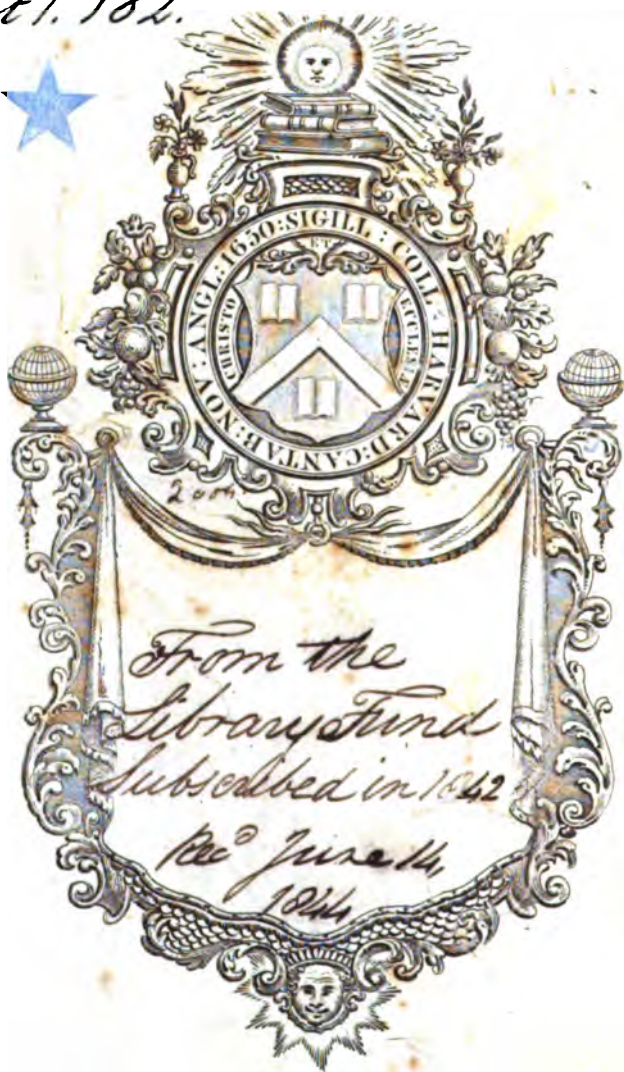 182.
SIGILL : COLL : HARVARD : CANTAB : NOV : ANGL : 1650 :
CHRISTO ET ECCLESIÆ
From the
Library Fund
Subscribed in 1842
Recd June 14,
1844